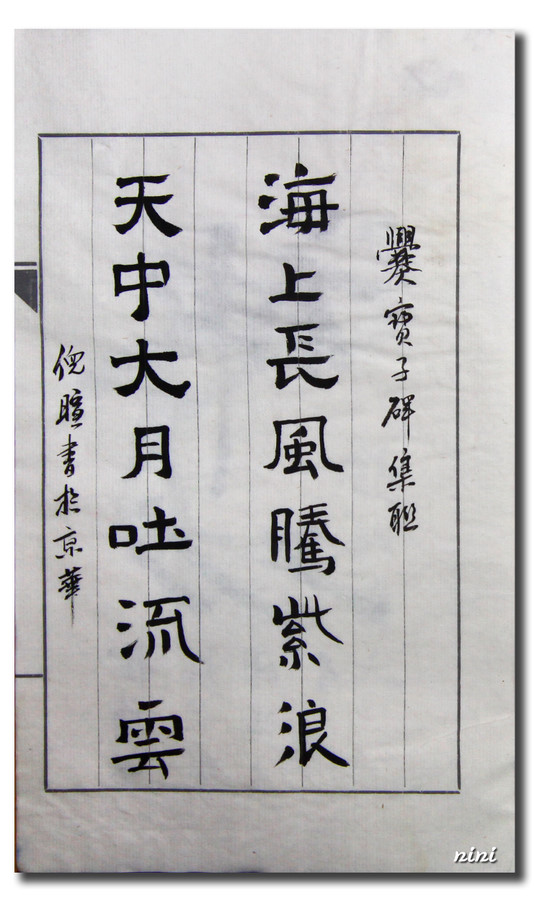 爨寶子碑集聯
海上長風騰紫浪
天中大月吐流雲
倪暄書於京華
nini